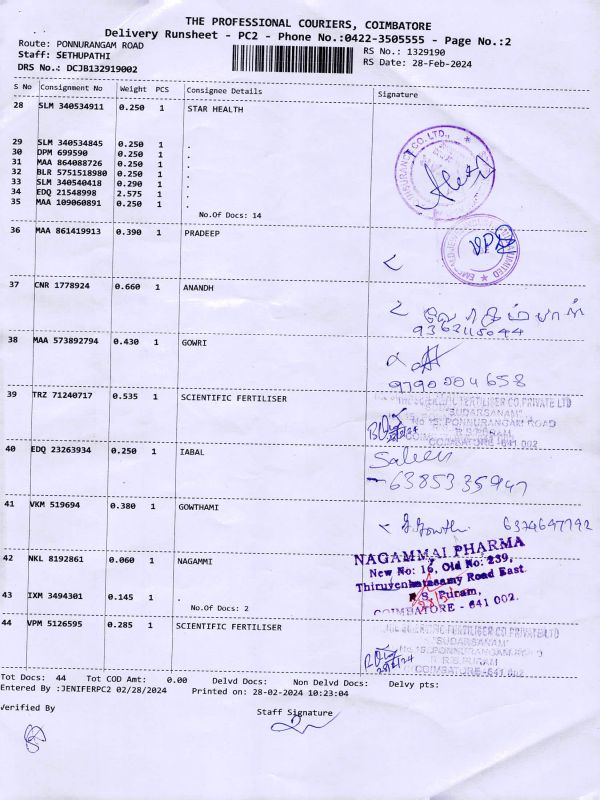 THE PROFESSIONAL COURIERS, COIMBATORE
Delivery Runsheet - PC2 - Phone No.:0422-3505555 - Page No.:2
Route: PONNURANGAM ROAD
Staff: SETHUPATHI
DRS No.: DCJB132919002
RS No.: 1329190
RS Date: 28-Feb-2024
S No Consignment No Weight PCS Consignee Details Signature
28 SLM 340534911 0.250 1 STAR HEALTH
29 SLM 340534845 0.250 1 .
30 DPM 699590 0.250 1 .
31 MAA 864088726 0.250 1 .
32 BLR 5751518980 0.250 1 .
33 SLM 340540418 0.290 1 .
34 EDQ 21548998 2.575 1 .
35 MAA 109060891 0.250 1 .
No.Of Docs: 14
36 MAA 861419913 0.390 1 PRADEEP
37 CNR 1778924 0.660 1 ANANDH
9362115044
38 MAA 573892794 0.430 1 GOWRI
9790004658
39 TRZ 71240717 0.535 1 SCIENTIFIC FERTILISER
THE SCIENTIFIC FERTILISER CO.PRIVATE LTD
"SUDARSANAM"
No 15, PONNURANGAM ROAD
R.S.PURAM,
COIMBATORE -641 002
40 EDQ 23263934 0.250 1 IABAL
Saleem
6385335947
41 VKM 519694 0.380 1 GOWTHAMI
G. Gowth. 6374647792
42 NKL 8192861 0.060 1 NAGAMMI
NAGAMMAI PHARMA
New No: 16, Old No: 239,
Thiruvenkatasamy Road East
R.S. Puram,
COIMBATORE - 641 002.
43 IXM 3494301 0.145 1 .
No.Of Docs: 2
44 VPM 5126595 0.285 1 SCIENTIFIC FERTILISER
THE SCIENTIFIC FERTILISER CO.PRIVATE LTD
"SUDARSANAM"
15, PONNURANGAM ROAD
R.S.PURAM
COIMBATORE -641 002
Tot Docs: 44 Tot COD Amt: 0.00 Delvd Docs: Non Delvd Docs: Delvy pts:
Entered By :JENIFERPC2 02/28/2024 Printed on: 28-02-2024 10:23:04
Verified By Staff Signature